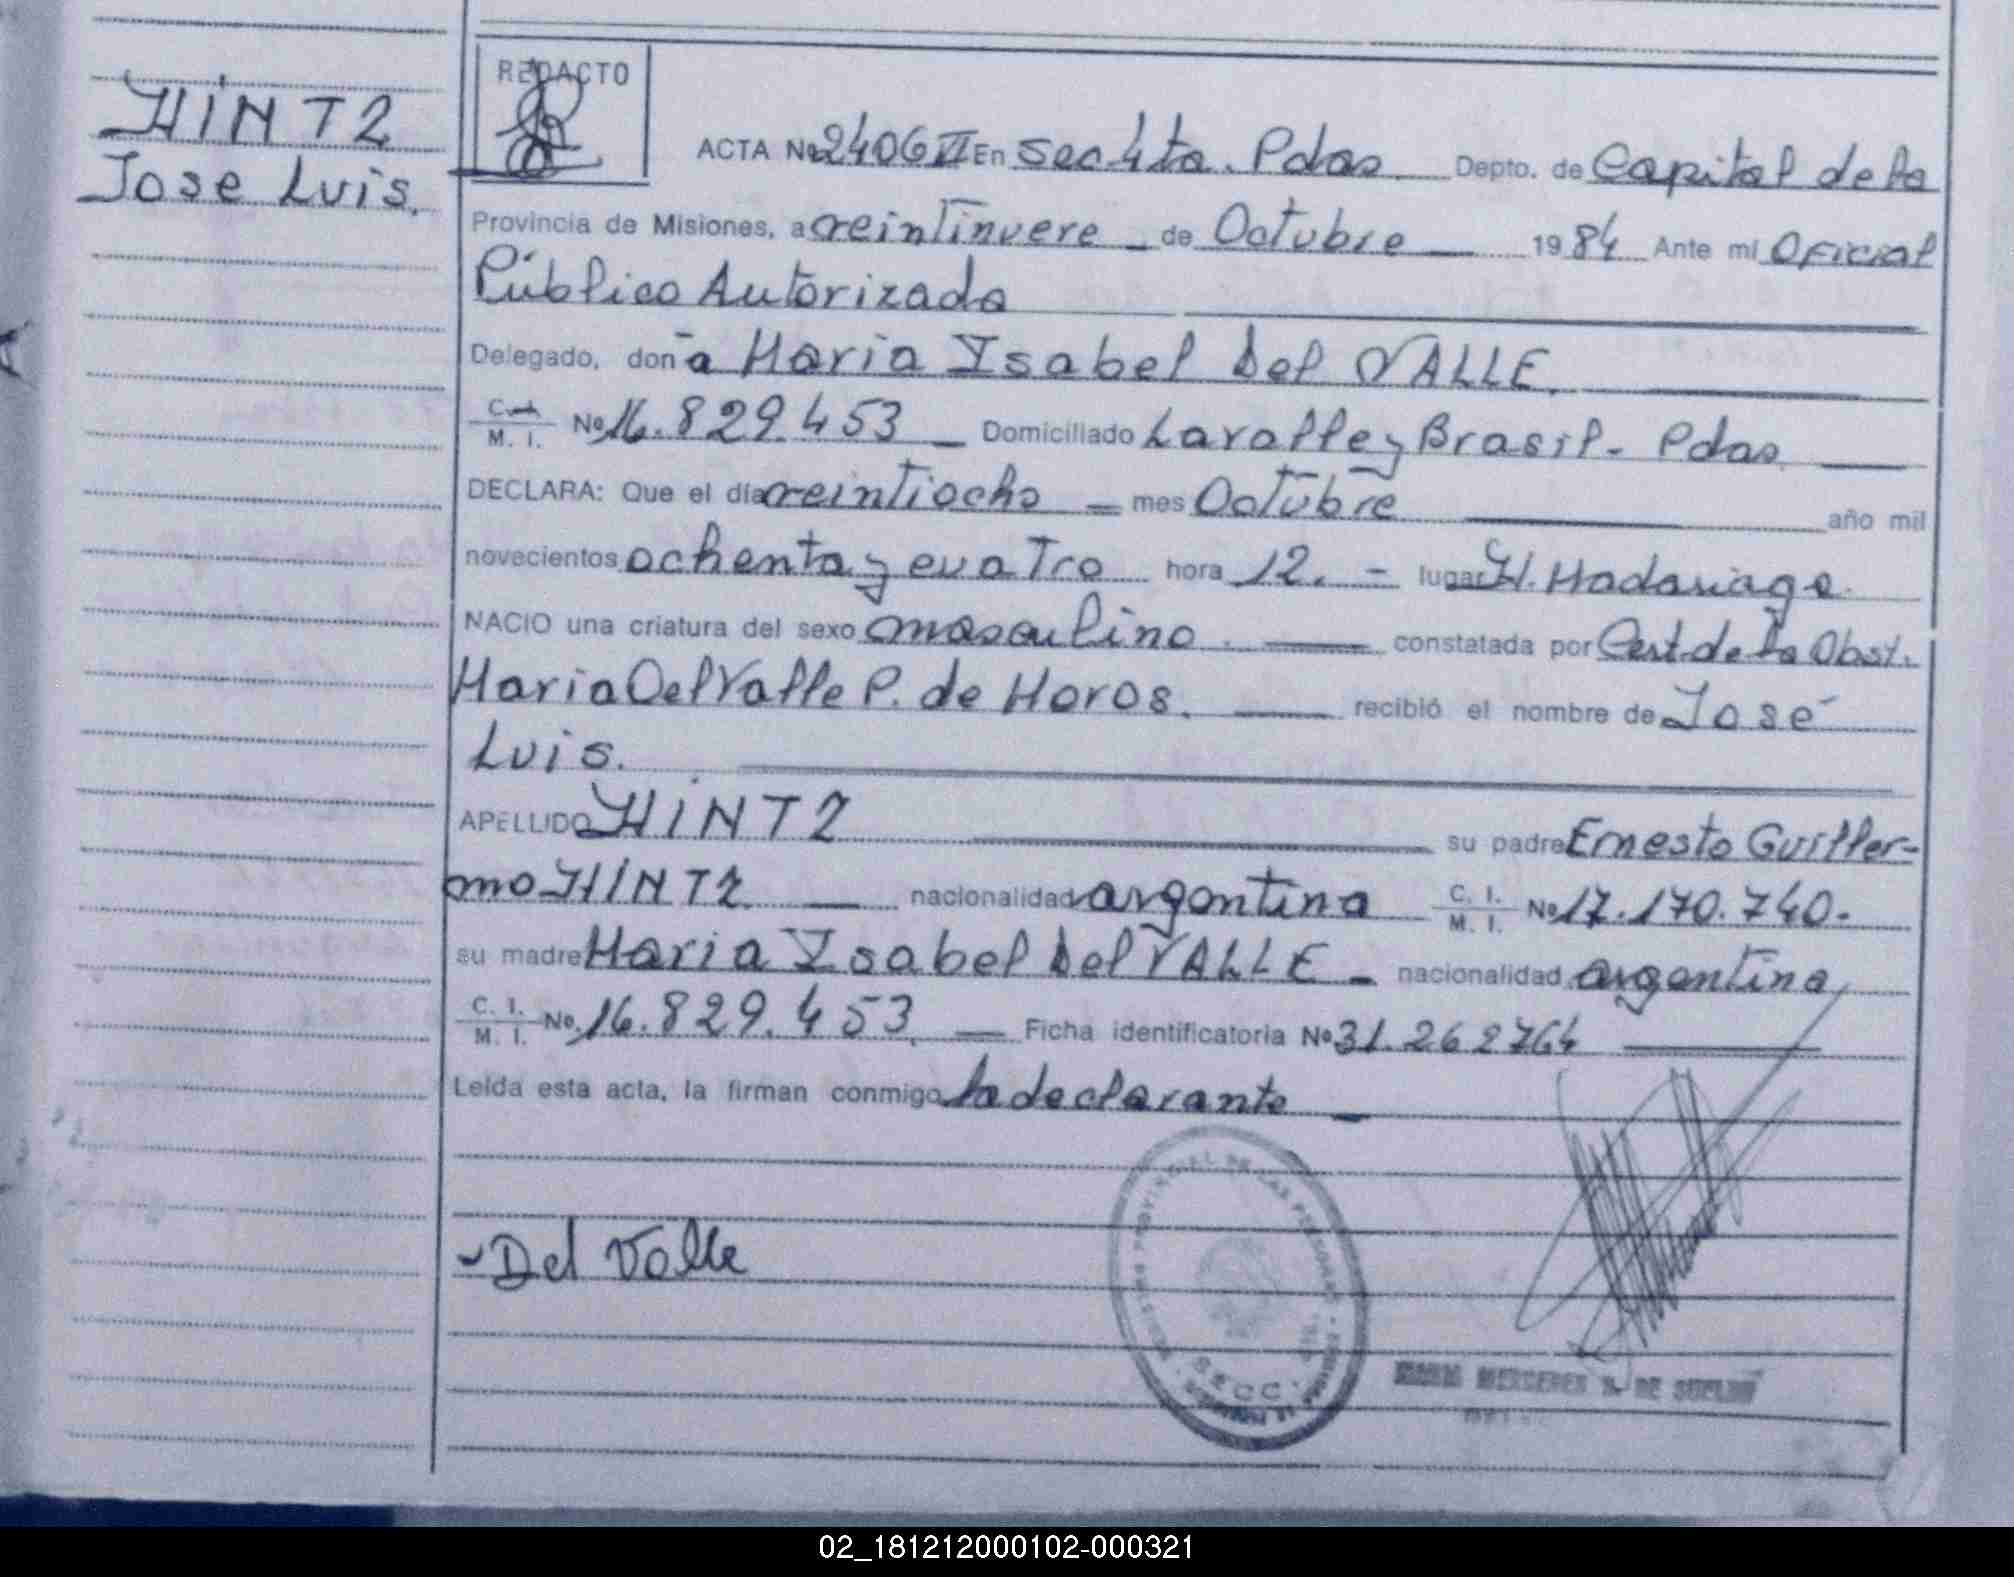 HINTZ
Jose Luis.
REDACTO
ACTA No 2406 II En Sec 4ta. Pdas. Depto. de Capital de la
Provincia de Misiones, a veintinueve de Octubre 1984 Ante mi Oficial
Público Autorizada
Delegado, doña Maria Isabel Del VALLE.
C. I. M. I. No 16.829.453 Domiciliado Lavalle y Brasil - Pdas
DECLARA: Que el día veintiocho mes Octubre año mil
novecientos ochenta y cuatro hora 12. - lugar H. Madariaga.
NACIO una criatura del sexo masculino. constatada por Cert. de la Obst.
Maria Del Valle P. de Moros. recibió el nombre de José
Luis.
APELLIDO HINTZ su padre Ernesto Guiller-
mo HINTZ nacionalidad argentina C. I. M. I. No 17.170.740.
su madre Maria Isabel Del VALLE - nacionalidad argentina
C. I. M. I. No. 16.829.453. Ficha identificatoria No 31.262764
Leída esta acta, la firman conmigo la declarante
Del Valle
PROVINCIAL DE LAS PERSONAS
SECC.
MERCEDES DE
02_181212000102-000321